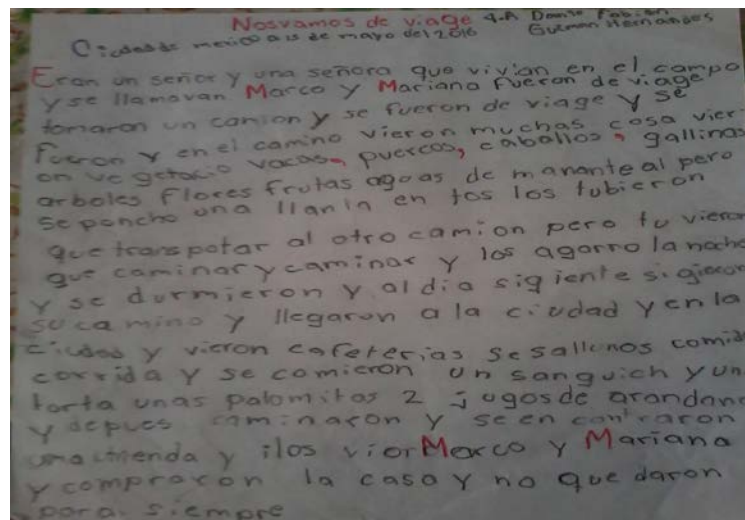 Nosvamos de viage 4.A Danto Fabian
Ciudadde mexico a 15 de mayo del 2016 Guzman Hernandes
Eran un señor y una señora que vivian en el campo
y se llamavan Marco y Mariana fueron de viage
tomaron un camion y se fueron de viage y se
fueron y en el camino vieron muchas cosa vier
on vegetacio vacas, puercos, caballos, gallinas
arboles flores frutas agoas de mananteal pero
se poncho una llanta en tos los tubieron
que transpotar al otro camion pero tu vieron
que caminar y caminar y los agarro la noche
y se durmieron y al dia sigiente sigieron
su camino y llegaron a la ciudad y en la
ciudad y vieron cafeterias comida
corrida y se comieron un sanguich y un
torta unas palomitas 2 jugos de arandano
y depues caminaron y se en contraron
una tienda y ilos vior Marco y Mariana
y compraron la casa y no que daron
para siempre